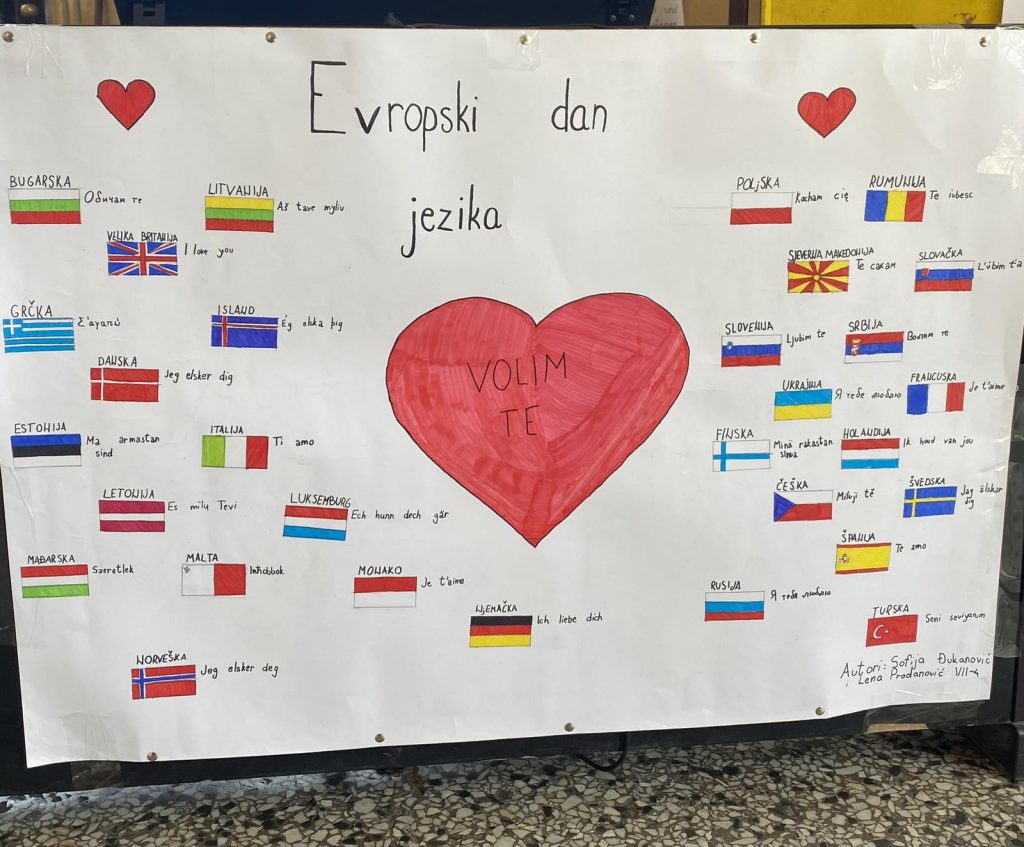 Evropski dan
jezika
BUGARSKA
Обичам те
LITVANIJA
Aš tave myliu
VELIKA BRITANIJA
I love you
GRČKA
Σ'αγαπώ
ISLAND
Ég elska þig
DANSKA
Jeg elsker dig
ESTONIJA
Ma armastan
sind
ITALIJA
Ti amo
LETONIJA
Es mīlu Tevi
LUKSEMBURG
Ech hunn dech gär
MAĐARSKA
Szeretlek
MALTA
Inħobbok
MONAKO
Je t'aime
NJEMAČKA
Ich liebe dich
NORVEŠKA
Jeg elsker deg
VOLIM
TE
POLjSKA
Kocham cię
RUMUNIJA
Te iubesc
SJEVERNA MAKEDONIJA
Те сакам
SLOVAČKA
L'úbim ťa
SLOVENIJA
Ljubim te
SRBIJA
Волим те
UKRAJINA
Я тебе люблю
FRANCUSKA
Je t'aime
FINSKA
Minä rakastan
sinua
HOLANDIJA
Ik houd van jou
ČEŠKA
Miluji tě
ŠVEDSKA
Jag älskar
dig
ŠPANIJA
Te amo
RUSIJA
Я тебя люблю
TURSKA
Seni seviyorum
Autori: Sofija Đukanović
i Lena Prodanović VII-4
und